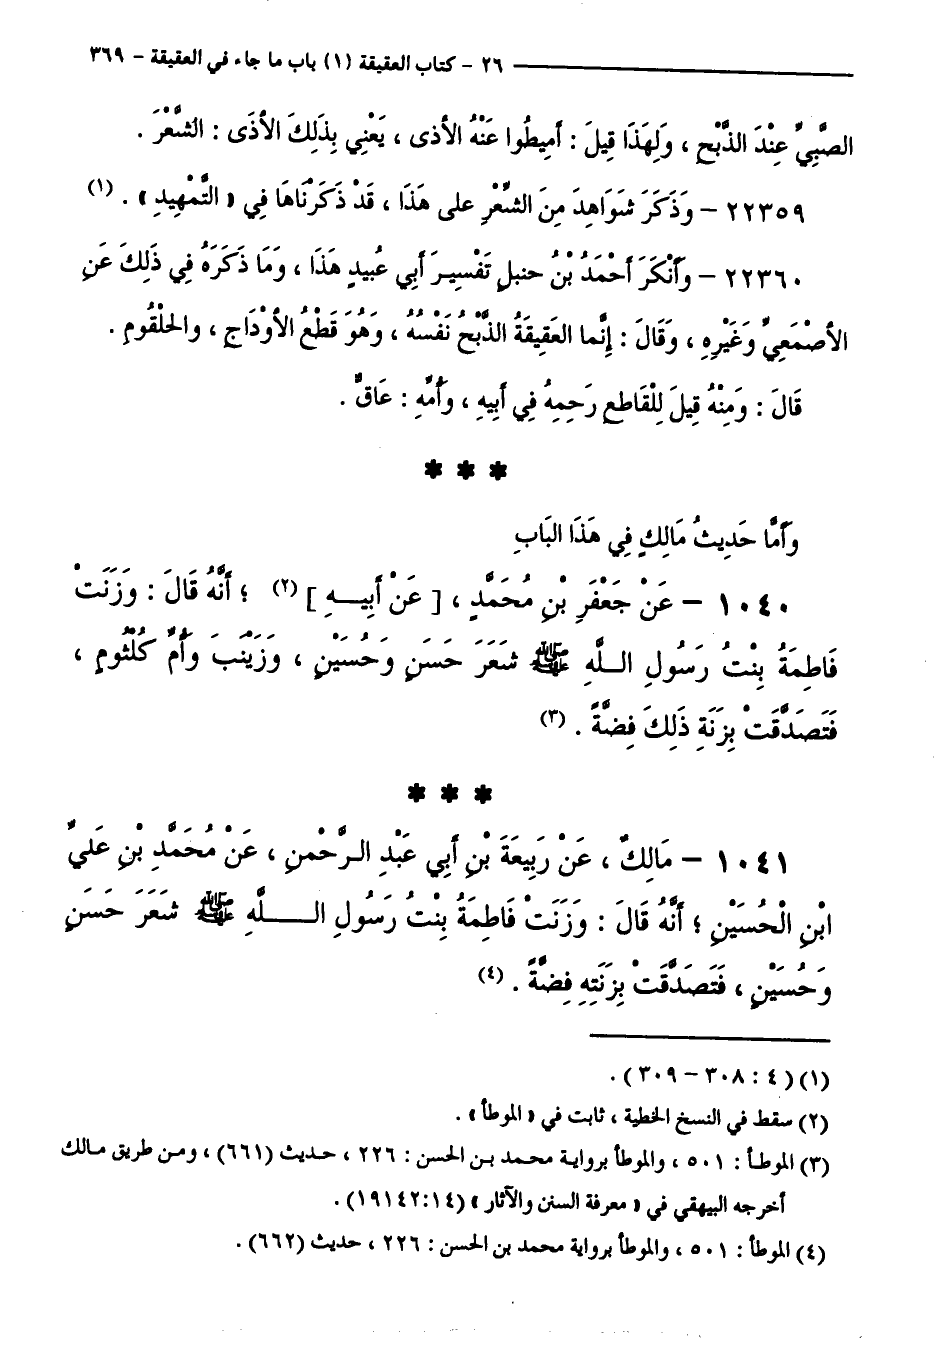 ٢٦ - كتاب العقيقة (١) باب ما جاء في العقيقة - ٣٦٩
الصَّبِيِّ عِنْدَ الذَّبْحِ ، وَلِهَذَا قِيلَ : أَمِيطُوا عَنْهُ الأذى ، يَعْنِي بِذَلِكَ الأَذَى : الشَّعْرَ .
٢٢٣٥٩ - وَذَكَرَ شَوَاهِدَ مِنَ الشِّعْرِ على هَذَا ، قَدْ ذَكَرْنَاهَا فِي « التَّمْهِيدِ » . (١)
٢٢٣٦٠ - وَأَنْكَرَ أَحْمَدُ بْنُ حنبلٍ تَفْسِيرَ أَبِي عُبيدٍ هَذَا ، وَمَا ذَكَرَهُ فِي ذَلِكَ عَنِ
الأصْمَعِيِّ وَغَيْرِهِ ، وَقَالَ : إِنَّما العَقِيقَةُ الذَّبْحُ نَفْسُهُ ، وَهُوَ قَطْعُ الأوْدَاجِ ، والحلْقُومِ .
قَالَ : وَمِنْهُ قِيلَ لِلْقَاطعِ رَحِمِهُ فِي أَبِيهِ ، وَأُمِّهِ : عَاقٌّ .
* * *
وَأَمَّا حَدِيثُ مَالِكٍ فِي هَذَا البَابِ
١٠٤٠ - عَنْ جَعْفَرِ بْنِ مُحَمَّدٍ ، [ عَنْ أَبِيـــهِ ] (٢) ؛ أَنَّهُ قَالَ : وَزَنَتْ
فَاطِمَةُ بِنْتُ رَسُولِ اللَّهِ ﷺ شَعَرَ حَسَنٍ وَحُسَيْنٍ ، وَزَيْنَبَ وَأُمِّ كُلْثُومٍ ،
فَتَصَدَّقَتْ بِزِنَةِ ذَلِكَ فِضَّةً . (٣)
* * *
١٠٤١ - مَالِكٌ ، عَنْ رَبِيعَةَ بْنِ أَبِي عَبْدِ الرَّحْمنِ ، عَنْ مُحَمَّدِ بْنِ عَلِيِّ
ابْنِ الْحُسَيْنِ ؛ أَنَّهُ قَالَ : وَزَنَتْ فَاطِمَةُ بِنْتُ رَسُولِ اللَّهِ ﷺ شَعَرَ حَسَنٍ
وَحُسَيْنٍ ، فَتَصَدَّقَتْ بِزِنَتِهِ فِضَّةً . (٤)
(١) (٤ : ٣٠٨ - ٣٠٩) .
(٢) سقط في النسخ الخطية ، ثابت في « الموطأ » .
(٣) الموطأ : ٥٠١ ، والموطأ برواية محمد بن الحسن : ٢٢٦ ، حديث (٦٦١) ، ومن طريق مالك
أخرجه البيهقي في « معرفة السنن والآثار » (١٩١٤٢:١٤) .
(٤) الموطأ : ٥٠١ ، والموطأ برواية محمد بن الحسن : ٢٢٦ ، حديث (٦٦٢) .